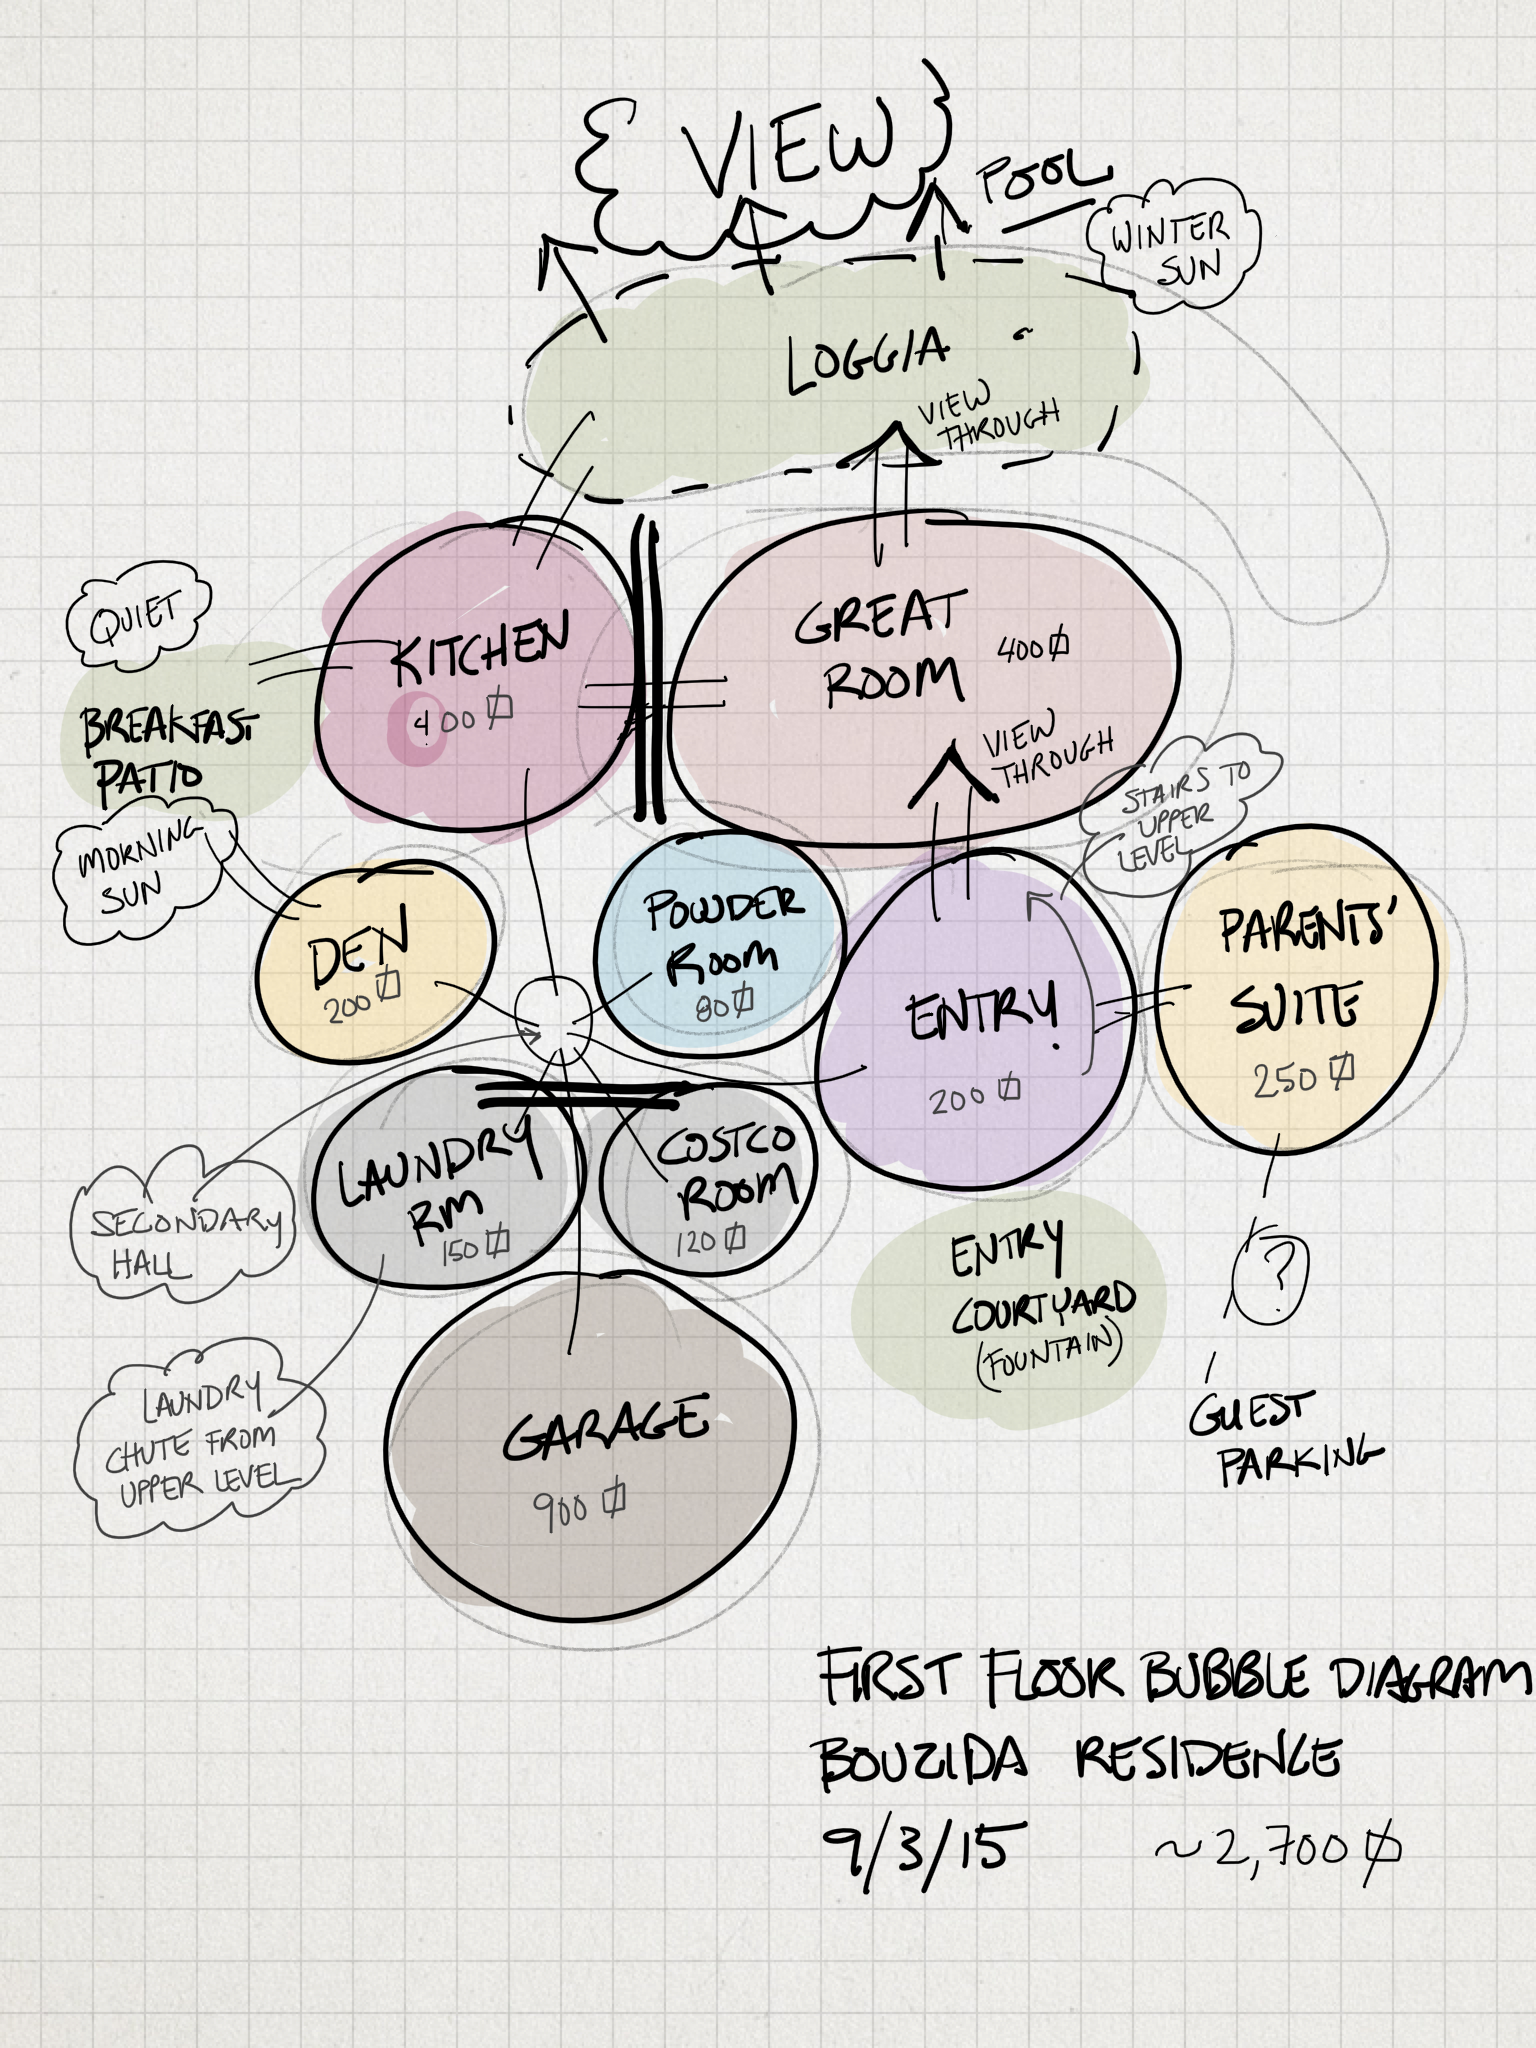 { VIEW }
POOL
WINTER
SUN
LOGGIA
VIEW
THROUGH
QUIET
KITCHEN
400
GREAT
ROOM
400
BREAKFAST
PATIO
VIEW
THROUGH
STAIRS TO
UPPER
LEVEL
MORNING
SUN
DEN
200
POWDER
ROOM
80
ENTRY
200
PARENTS'
SUITE
250
LAUNDRY
RM
150
COSTCO
ROOM
120
SECONDARY
HALL
ENTRY
COURTYARD
(FOUNTAIN)
?
GUEST
PARKING
LAUNDRY
CHUTE FROM
UPPER LEVEL
GARAGE
900
FIRST FLOOR BUBBLE DIAGRAM
BOUZIDA RESIDENCE
9/3/15 ~2,700